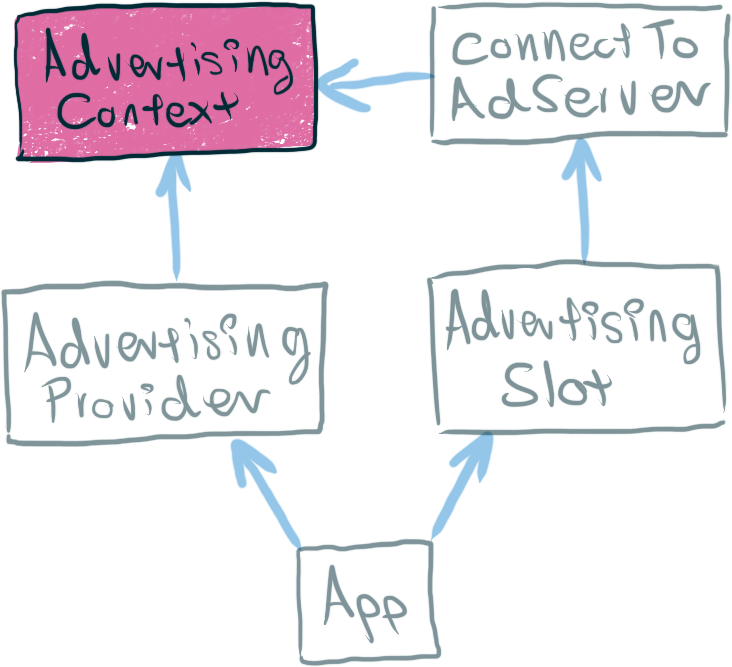 Advertising
Context
Connect To
AdServer
Advertising
Provider
Advertising
Slot
App